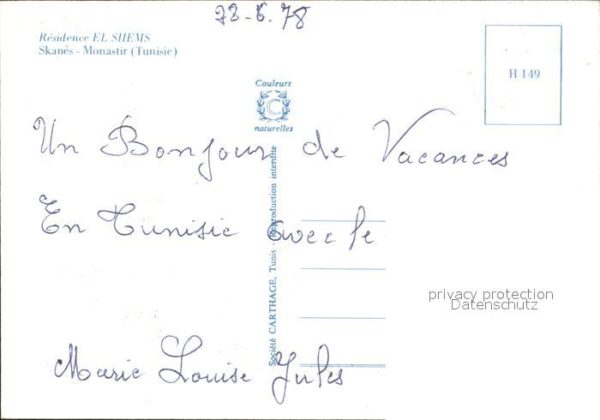 28-6.78
Résidence EL SHEMS
Skanès - Monastir (Tunisie)
H 149
Couleurs
C
naturelles
Un Bonjour de Vacances
En Tunisie avec le
Marie Louise Jules
Société CARTHAGE, Tunis - Reproduction interdite
privacy protection
Datenschutz